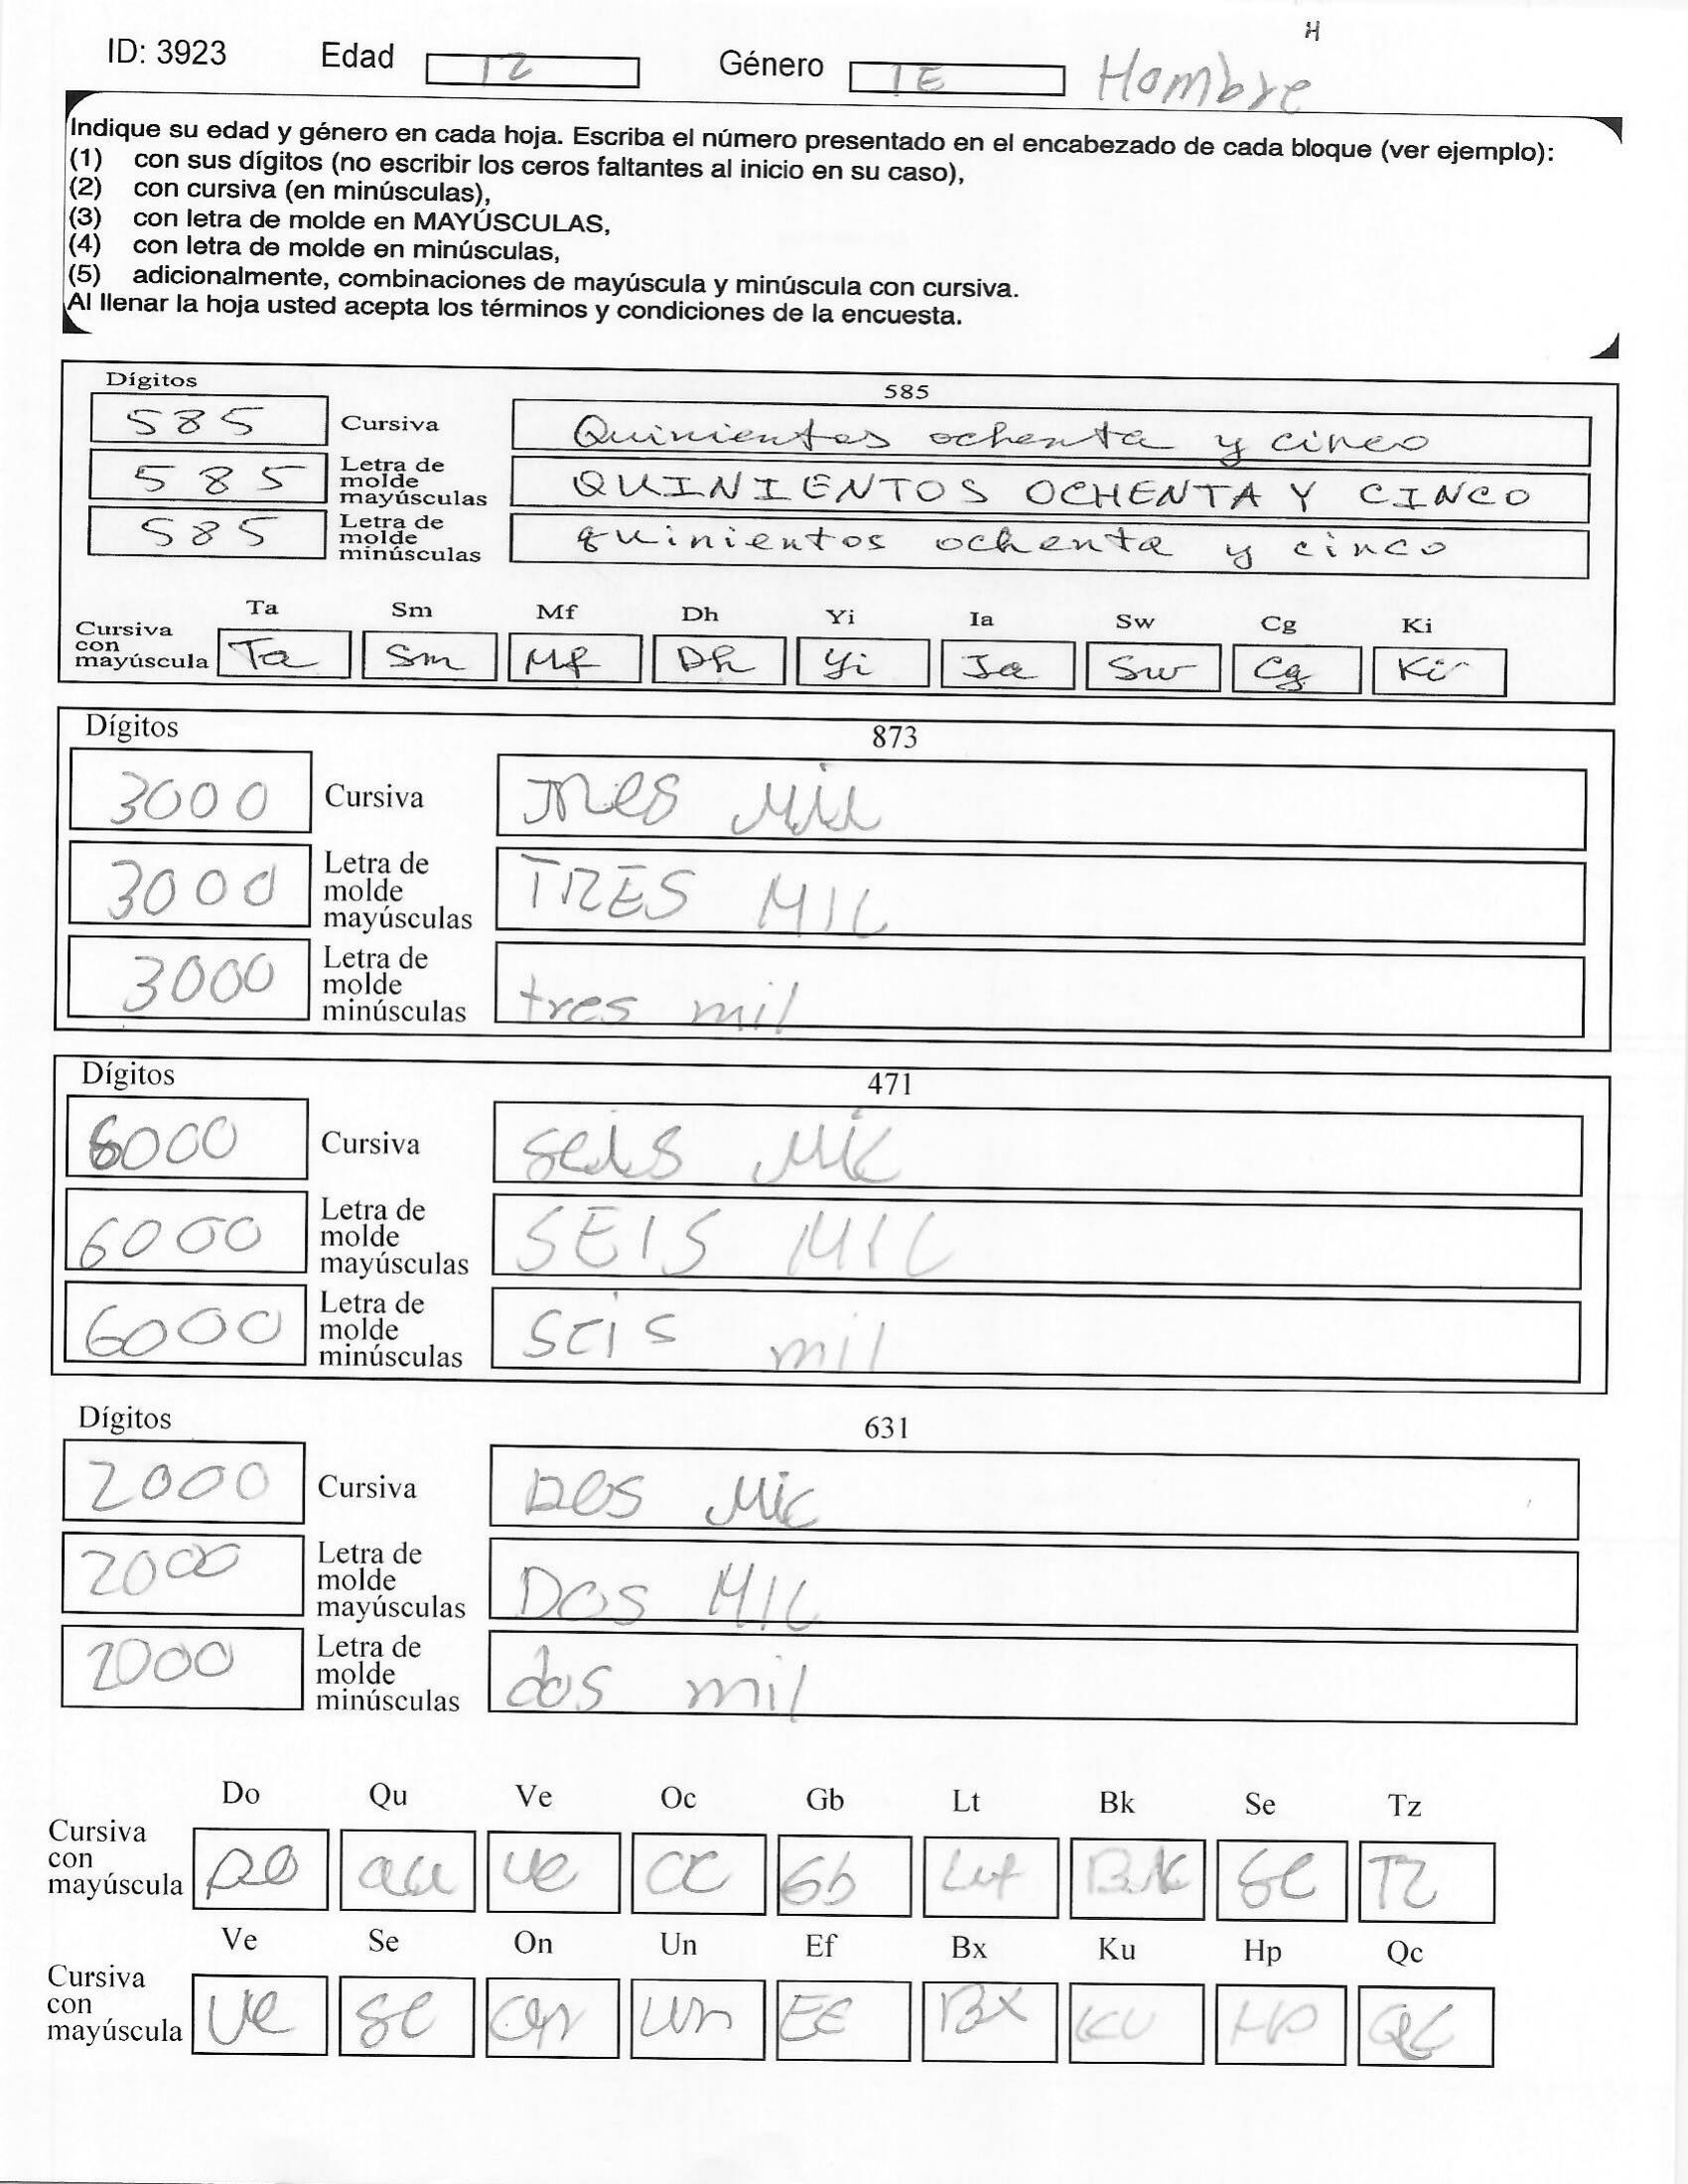 H
ID: 3923 Edad 12 Género 1E Hombre
Indique su edad y género en cada hoja. Escriba el número presentado en el encabezado de cada bloque (ver ejemplo):
(1) con sus dígitos (no escribir los ceros faltantes al inicio en su caso),
(2) con cursiva (en minúsculas),
(3) con letra de molde en MAYÚSCULAS,
(4) con letra de molde en minúsculas,
(5) adicionalmente, combinaciones de mayúscula y minúscula con cursiva.
Al llenar la hoja usted acepta los términos y condiciones de la encuesta.
Dígitos 585
585 Cursiva Quinientos ochenta y cinco
585 Letra de molde mayúsculas QUINIENTOS OCHENTA Y CINCO
585 Letra de molde minúsculas quinientos ochenta y cinco
Ta Sm Mf Dh Yi Ia Sw Cg Ki
Cursiva con mayúscula Ta Sm Mf Dh Yi Ia Sw Cg Ki
Dígitos 873
3000 Cursiva tres mil
3000 Letra de molde mayúsculas TRES MIL
3000 Letra de molde minúsculas tres mil
Dígitos 471
6000 Cursiva seis mil
6000 Letra de molde mayúsculas SEIS MIL
6000 Letra de molde minúsculas seis mil
Dígitos 631
2000 Cursiva Dos Mil
2000 Letra de molde mayúsculas DOS MIL
2000 Letra de molde minúsculas dos mil
Do Qu Ve Oc Gb Lt Bk Se Tz
Cursiva con mayúscula Do Qu Ve Oc Gb Lt Bk Se Tz
Ve Se On Un Ef Bx Ku Hp Qc
Cursiva con mayúscula Ve Se On Un EE Bx Ku Hp Qc